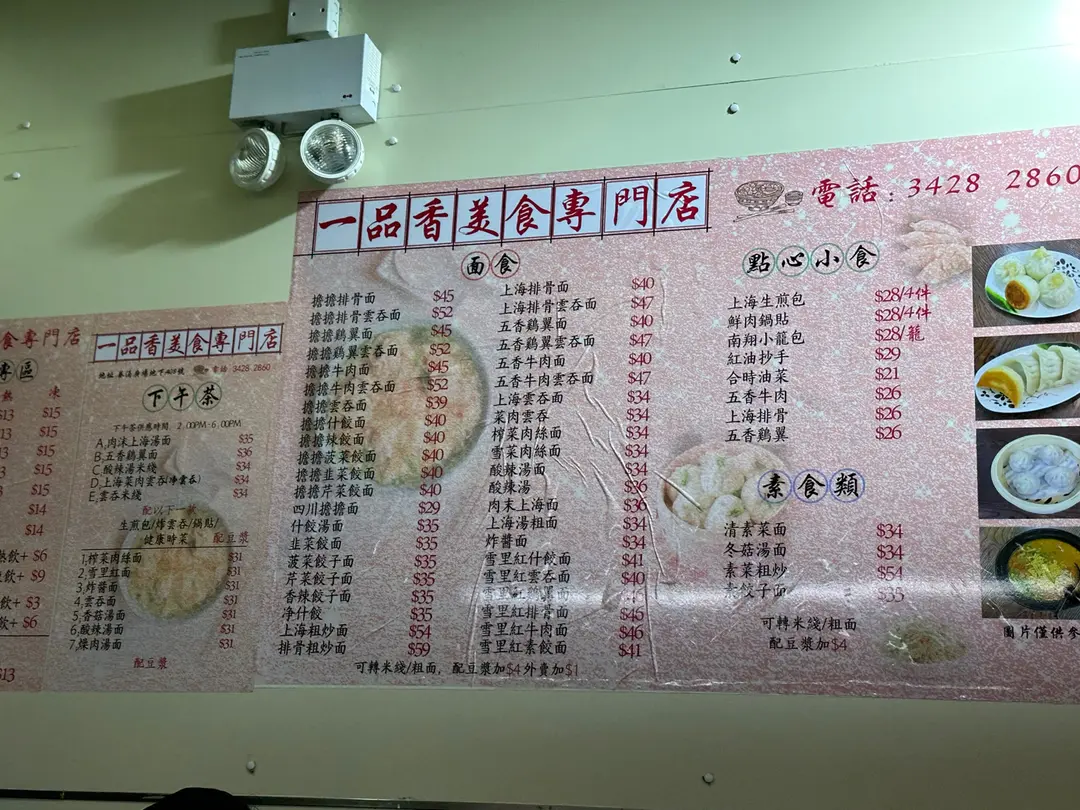 一品香美食專門店
電話：3428 2860
面食
擔擔排骨面 $45
擔擔排骨雲吞面 $52
擔擔鷄翼面 $45
擔擔鷄翼雲吞面 $52
擔擔牛肉面 $45
擔擔牛肉雲吞面 $52
擔擔雲吞面 $39
擔擔什餃面 $40
擔擔辣餃面 $40
擔擔菠菜餃面 $40
擔擔韭菜餃面 $40
擔擔芹菜餃面 $40
四川擔擔面 $29
什餃湯面 $35
韭菜餃面 $35
菠菜餃子面 $35
芹菜餃子面 $35
香辣餃子面 $35
净什餃 $35
上海粗炒面 $54
排骨粗炒面 $59
上海排骨面 $40
上海排骨雲吞面 $47
五香鷄翼面 $40
五香鷄翼雲吞面 $47
五香牛肉面 $40
五香牛肉雲吞面 $47
上海雲吞面 $34
菜肉雲吞 $34
榨菜肉絲面 $34
雪菜肉絲面 $34
酸辣湯面 $34
酸辣湯 $36
肉末上海面 $36
上海湯粗面 $34
炸醬面 $34
雪里紅什餃面 $41
雪里紅雲吞面 $40
雪里紅鷄翼面 $46
雪里紅排骨面 $46
雪里紅牛肉面 $46
雪里紅素餃面 $41
可轉米綫/粗面，配豆漿加$4外賣加$1
點心小食
上海生煎包 $28/4件
鮮肉鍋貼 $28/4件
南翔小籠包 $28/籠
紅油抄手 $29
合時油菜 $21
五香牛肉 $26
上海排骨 $26
五香鷄翼 $26
素食類
清素菜面 $34
冬菇湯面 $34
素菜粗炒 $54
素餃子面 $35
可轉米綫/粗面
配豆漿加$4
圖片僅供參
一品香美食專門店
3428 2860
下午茶
下午茶供應時間：2:00PM-6:00PM
A,肉沫上海湯面 $35
B,五香鷄翼面 $36
C,酸辣湯米綫 $34
D,上海菜肉雲吞(净雲吞) $34
E,雲吞米綫 $34
配以下一款
生煎包/炸雲吞/鍋貼/
健康時菜 配豆漿
1,榨菜肉絲面 $31
2,雪里紅面 $31
3,炸醬面 $31
4,雲吞面 $31
5,香菇湯面 $31
6,酸辣湯面 $31
7,燥肉湯面 $31
配豆漿
食專門店
專區
熱 凍
$13 $15
$13 $15
$13 $15
$13 $15
$13 $15
$14
$14
熱飲+ $6
凍飲+ $9
飲+ $3
飲+ $6
$13